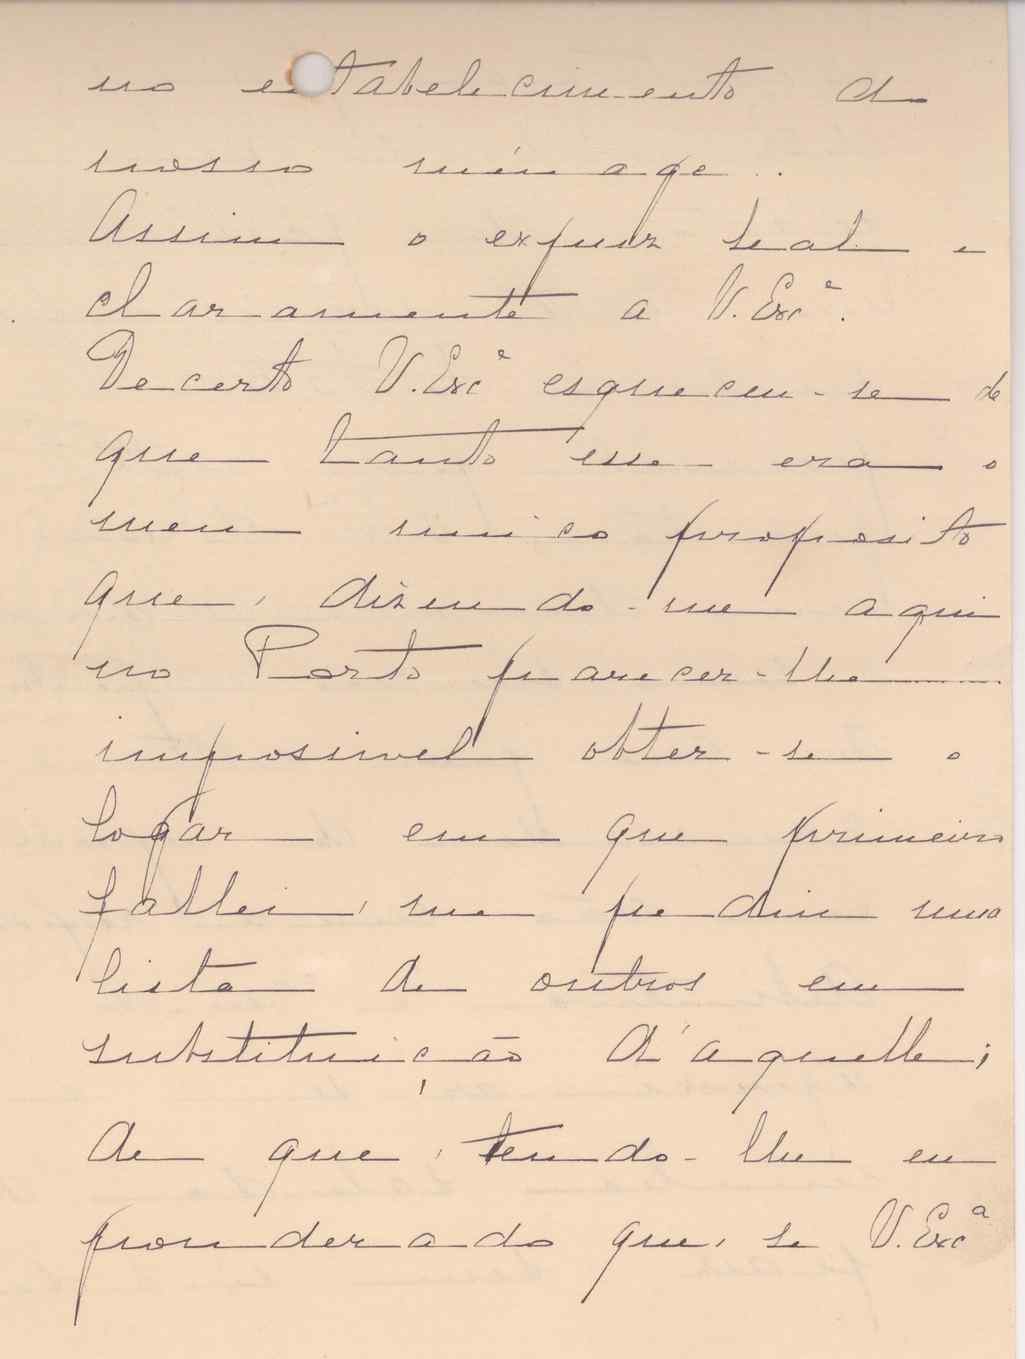 no estabelecimento do
nosso ménage..
Assim o expuz leal e
claramente a V. Exc.ª
Decerto V. Excª esqueceu-se de
que tanto esse era o
meu unico proposito
que, dizendo-me aqui
no Porto parecer-lhe
impossivel obter-se o
logar em que primeiro
fallei, me pediu uma
lista de outros em
substituição d'aquelle;
de que, tendo-lhe eu
ponderado que, se V. Excª